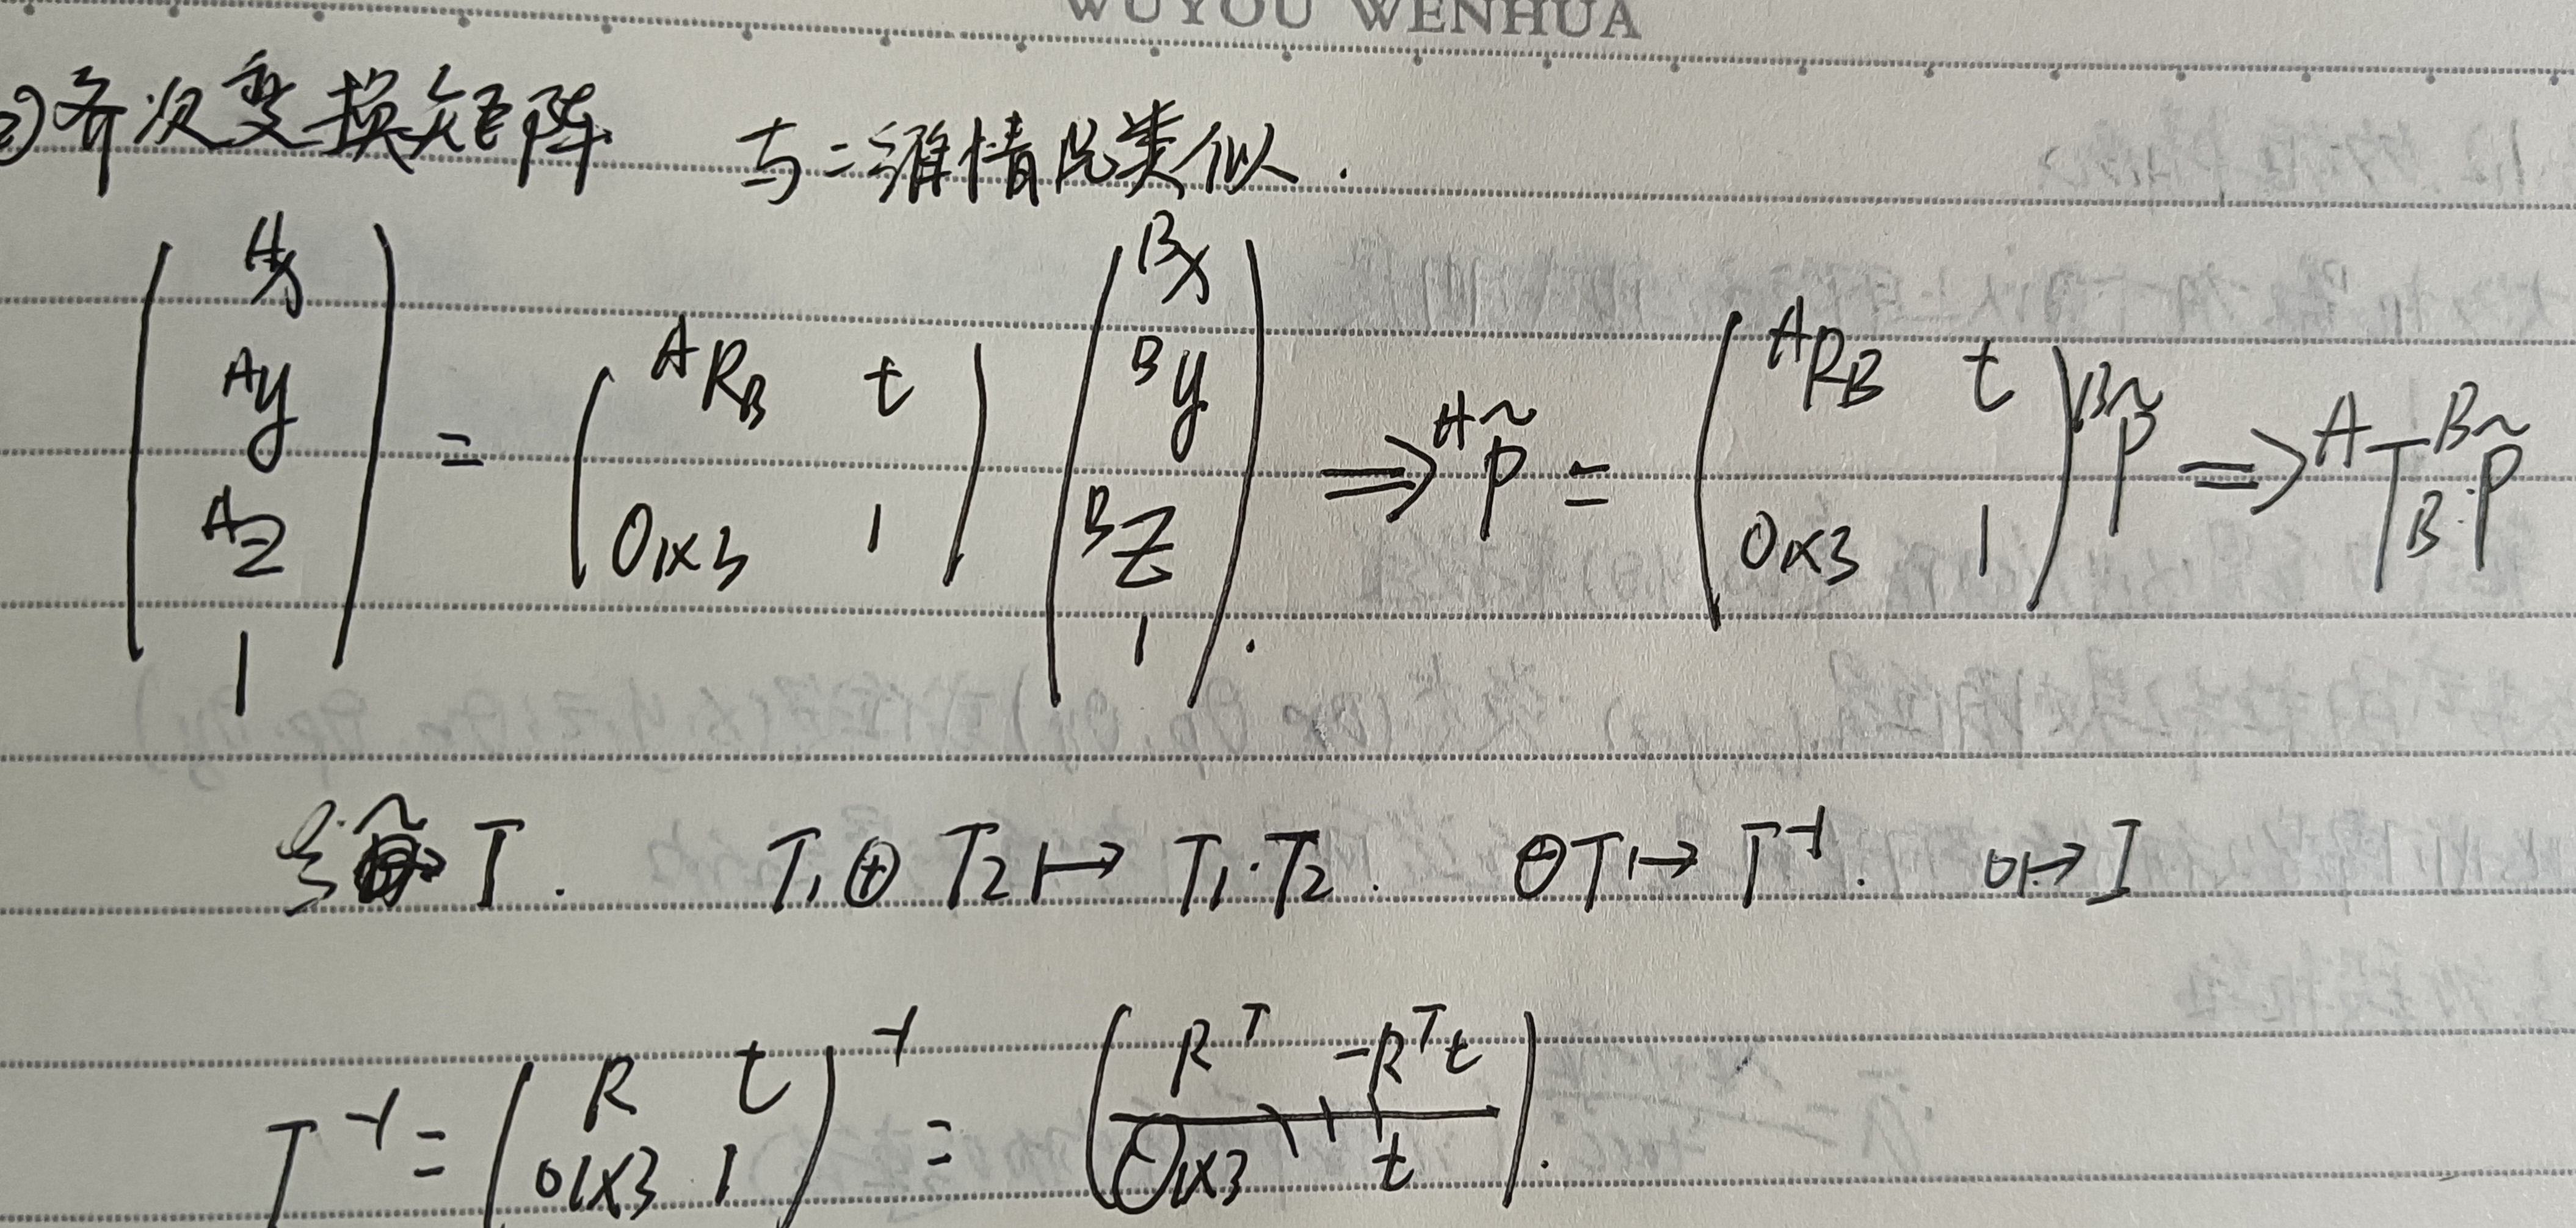 WUYOU WENHUA
2)齐次变换矩阵 与二维情况类似.
( ᴬx ᴬy ᴬz 1 ) = ( ᴬR_B t 0₁ₓ₃ 1 ) ( ᴮx ᴮy ᴮz 1 ). ⇒ ᴬp̃ = ( ᴬR_B t 0₁ₓ₃ 1 ) ᴮp̃ ⇒ ᴬT_B·ᴮp̃
T. T₁⊕T₂ ↦ T₁·T₂. ⊖T ↦ T⁻¹. 0 ↦ I
T⁻¹ = ( R t 0₁ₓ₃ 1 )⁻¹ = ( Rᵀ -Rᵀt 0₁ₓ₃ t ).